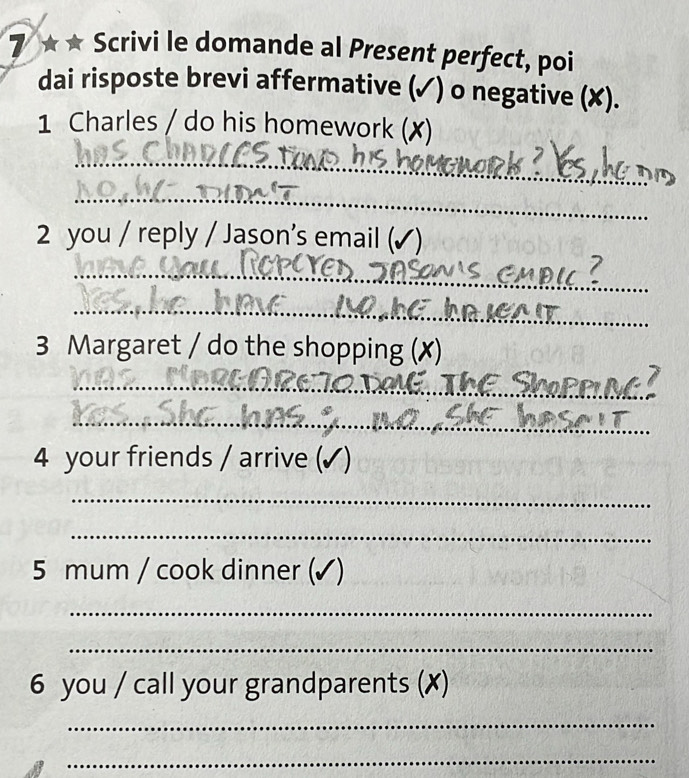 7 ★★ Scrivi le domande al Present perfect, poi
dai risposte brevi affermative (✓) o negative (✗).
1 Charles / do his homework (✗)
has CHARLES DONE his homework? Yes, he DID
NO, he DIDN'T
2 you / reply / Jason's email (✓)
have you REPLYED JASON'S EMAIL?
Yes, he HAVE NO, he HAVEN'T
3 Margaret / do the shopping (✗)
HAS MARGARETO DONE THE SHOPPING?
Yes, SHE HAS; NO, SHE HASN'T
4 your friends / arrive (✓)
5 mum / cook dinner (✓)
6 you / call your grandparents (✗)